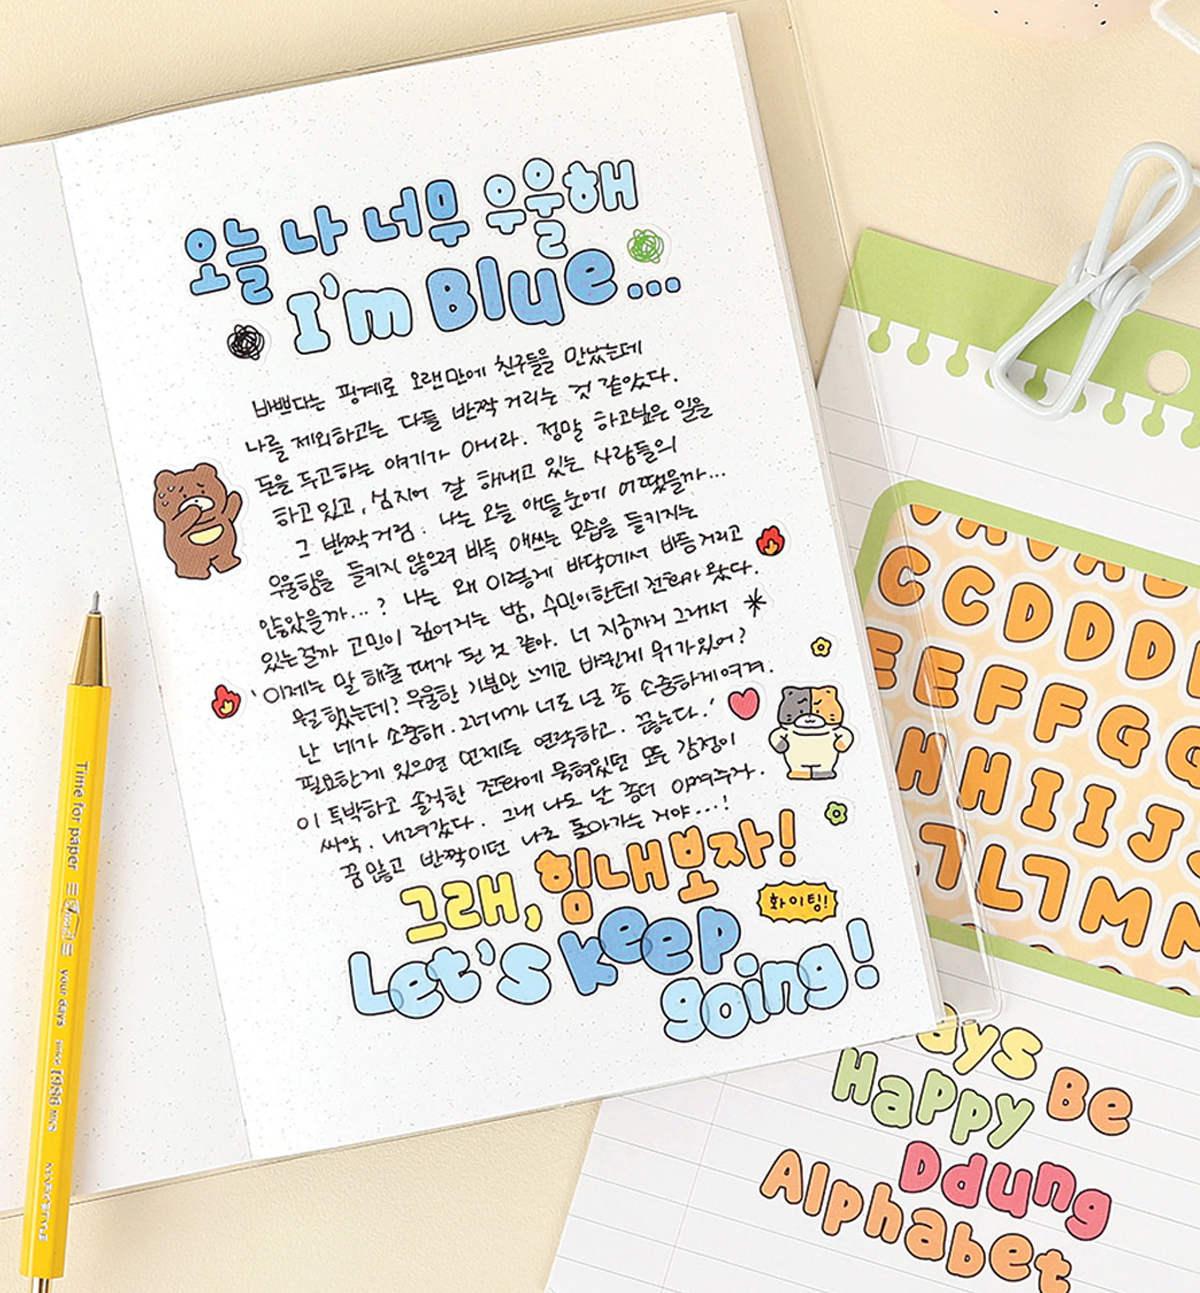 오늘 나 너무 우울해
I'm Blue...
바쁘다는 핑계로 오랜만에 친구들을 만났는데
나를 제외하고는 다들 반짝거리는 것 같았다.
돈을 두고하는 얘기가 아니라. 정말 하고싶은 일을
하고있고, 심지어 잘 해내고 있는 사람들의
그 반짝거림. 나는 오늘 애들눈에 어땠을까...
우울함을 들키지 않으려 바득 애쓰는 모습을 들키지는
않았을까...? 나는 왜 이렇게 바닥에서 바등거리고
있는걸까 고민이 깊어지는 밤, 수민이한테 전화가 왔다.
'이제는 말 해줄 때가 된 것 같아. 너 지금까지 그래서
뭘 했는데? 우울한 기분만 느끼고 바뀐게 뭐가있어?
난 네가 소중해. 그러니까 너도 널 좀 소중하게여겨.
필요한게 있으면 언제든 연락하고. 끊는다.'
이 투박하고 솔직한 전화에 묵혀있던 모든 감정이
싸악. 내려갔다. 그래 나도 날 좀더 아껴주자.
꿈 많고 반짝이던 나로 돌아가는거야...!
그래, 힘내보자!
화이팅!
Let's keep
going!
Time for paper
your days
since 1986
C C D D D
E E F F G G
H H I I J
L M
ays
Happy Be
Ddung
Alphabet